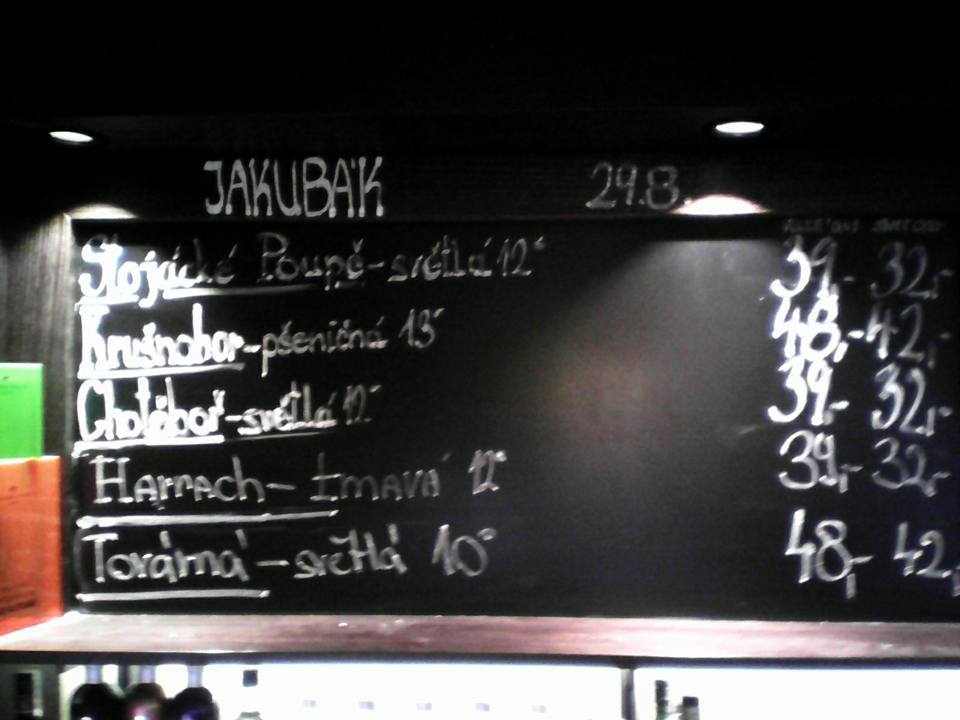 JAKUBÁK 29.8.
Poupě-světlá 12° 39,- 32,-
Krušnobor-pšeničná 13° 48,- 42,-
Chotěboř-světlá 12° 39,- 32,-
Harrach- tmavá 12° 39,- 32,-
Tovární - světlá 10° 48,- 42,-